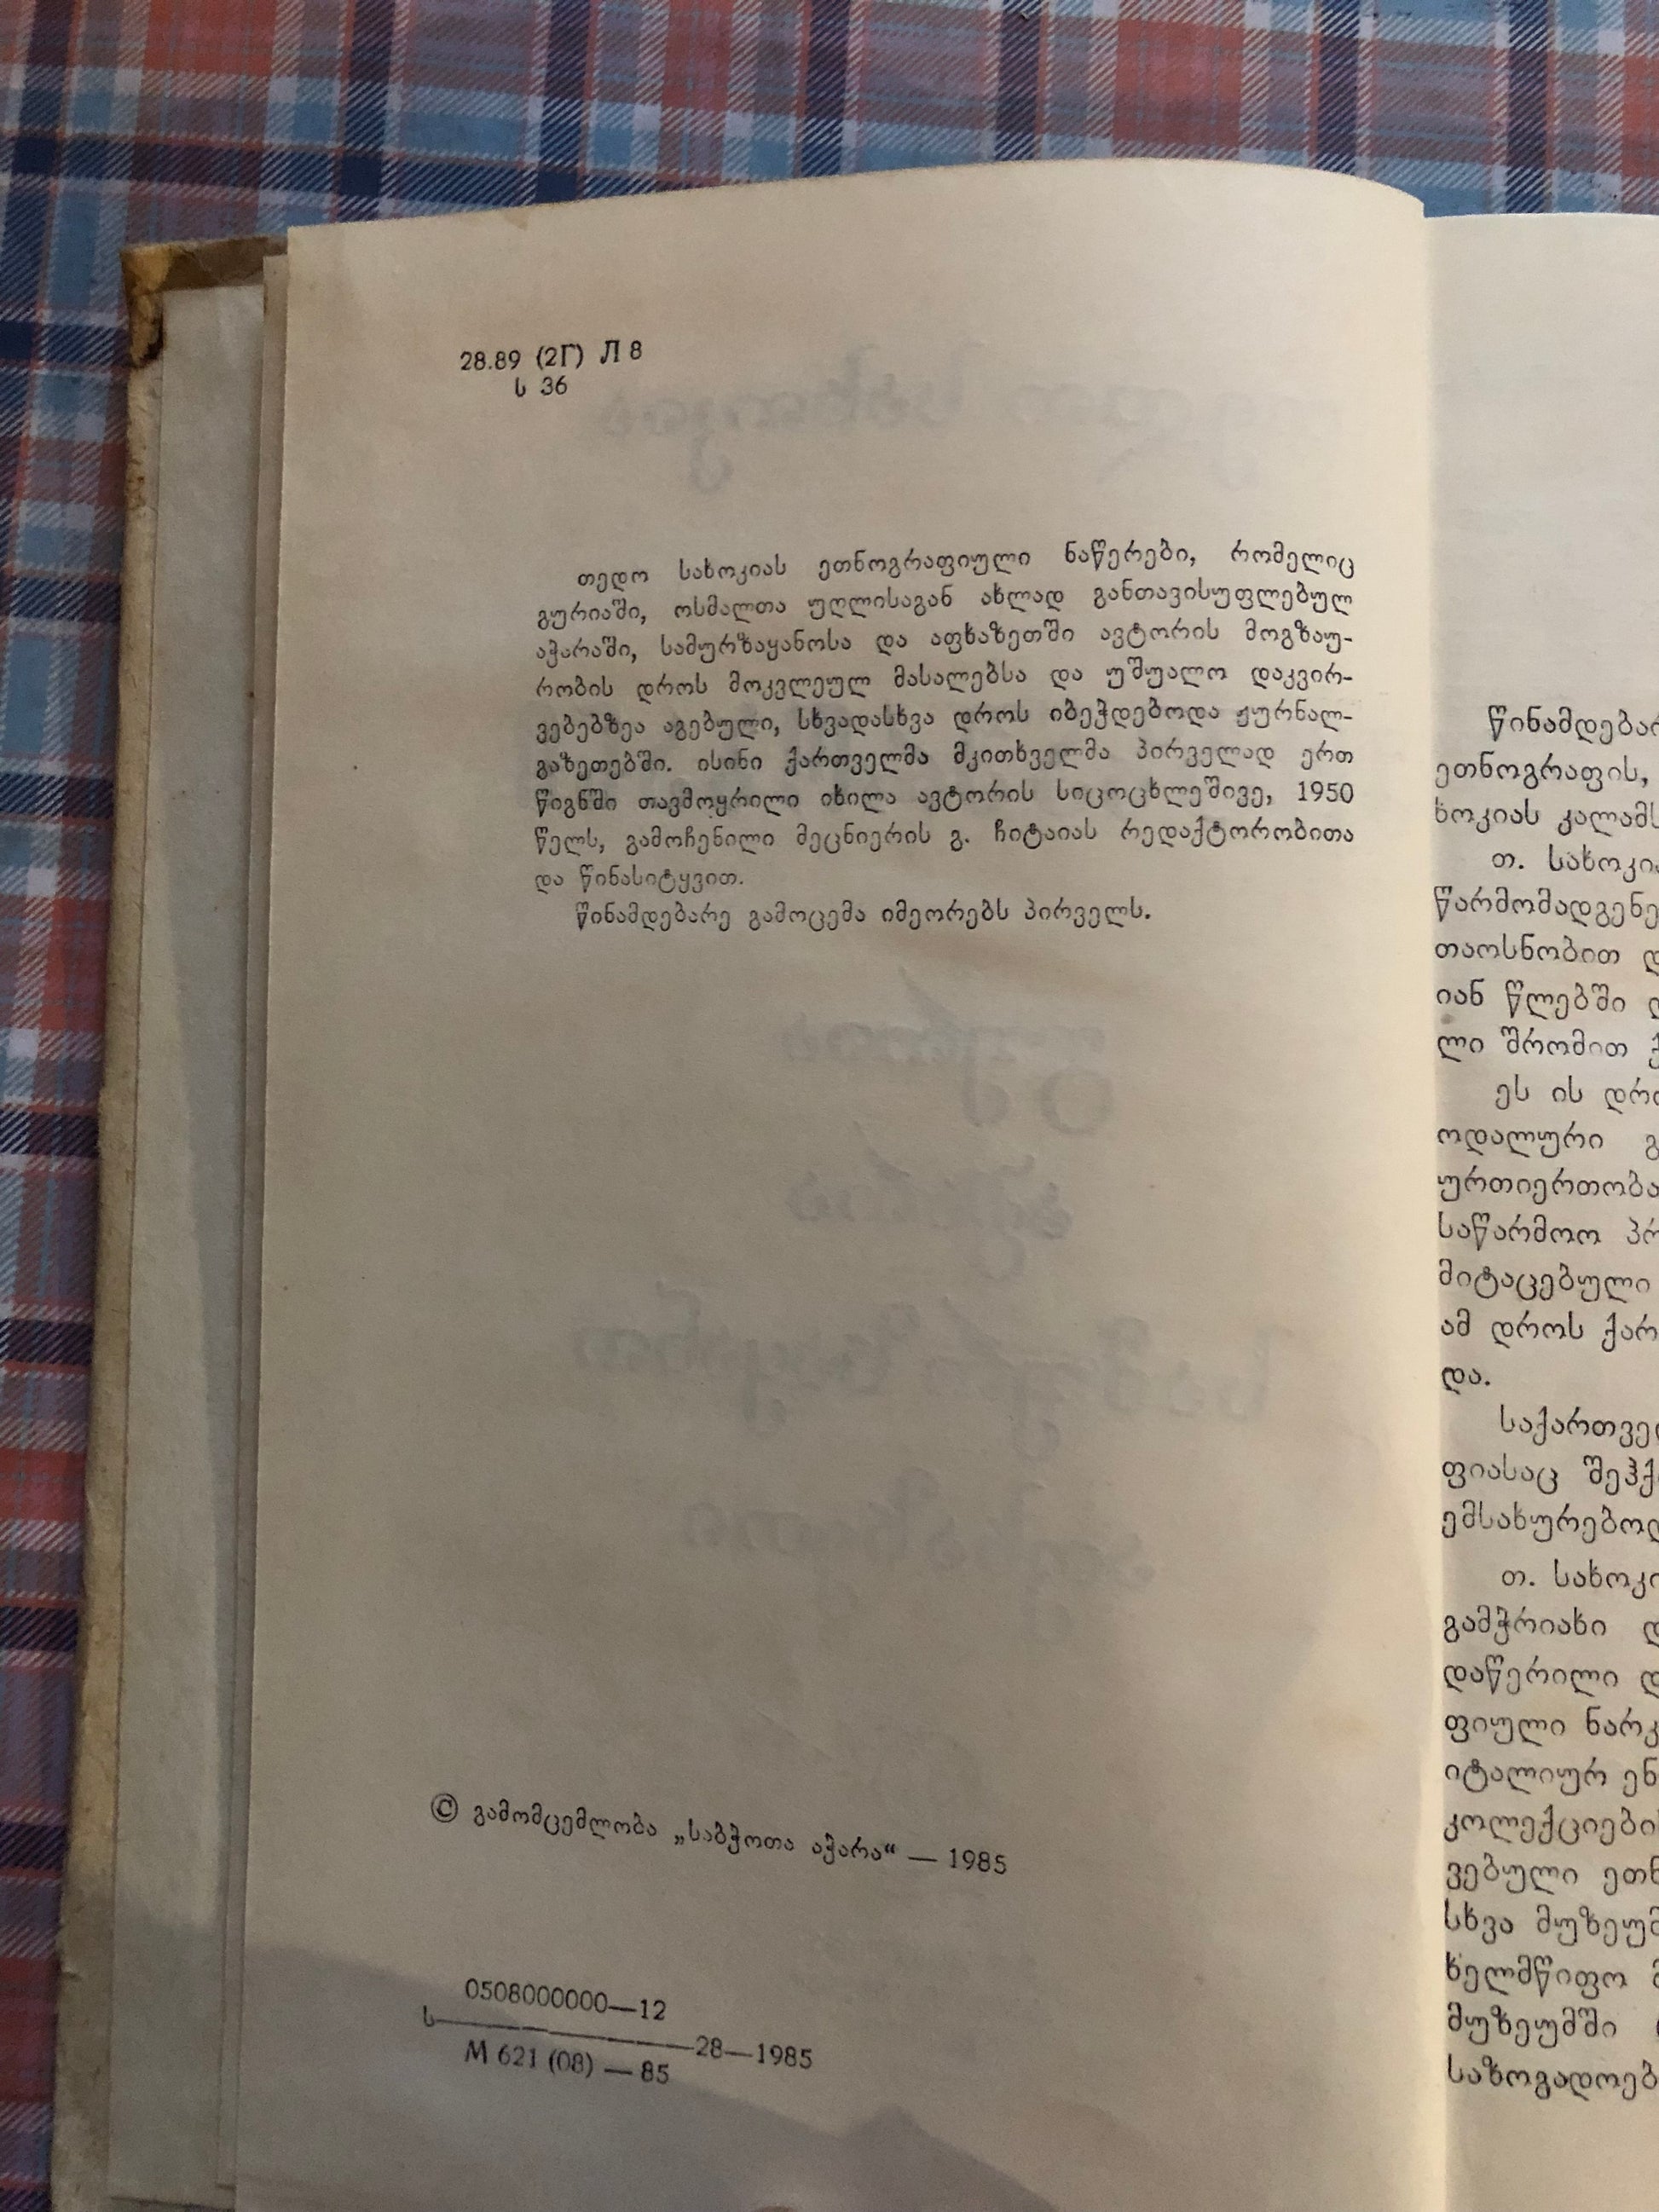 28.89 (2Г) Л 8
ს 36
თედო სახოკიას ეთნოგრაფიული ნაწერები, რომელიც
გურიაში, ოსმალთა უღლისაგან ახლად განთავისუფლებულ
აჭარაში, სამურზაყანოსა და აფხაზეთში ავტორის მოგზაუ-
რობის დროს მოკვლეულ მასალებსა და უშუალო დაკვირ-
ვებებზეა აგებული, სხვადასხვა დროს იბეჭდებოდა ჟურნალ-
გაზეთებში. ისინი ქართველმა მკითხველმა პირველად ერთ
წიგნში თავმოყრილი იხილა ავტორის სიცოცხლეშივე, 1950
წელს, გამოჩენილი მეცნიერის გ. ჩიტაიას რედაქტორობითა
და წინასიტყვით.
წინამდებარე გამოცემა იმეორებს პირველს.
© გამომცემლობა „საბჭოთა აჭარა“ — 1985
0508000000—12
ს————28—1985
М 621 (08) — 85
წინამდებარ
ეთნოგრაფის,
ხოკიას კალამს
თ. სახოკია
წარმომადგენე
თაოსნობით დ
იან წლებში დ
ლი შრომით ქ
ეს ის დრო
ოდალური გ
ურთიერთობა
საწარმოო პრ
მიტაცებული
ამ დროს ქარ
და.
საქართველ
ფიასაც შეჰქ
ემსახურებოდ
თ. სახოკი
გამჭრიახი დ
დაწერილი დ
ფიული ნარკ
იტალიურ ენ
კოლექციები
ვებული ეთნ
სხვა მუზეუმ
ხელმწიფო მ
მუზეუმში
საზოგადოებ